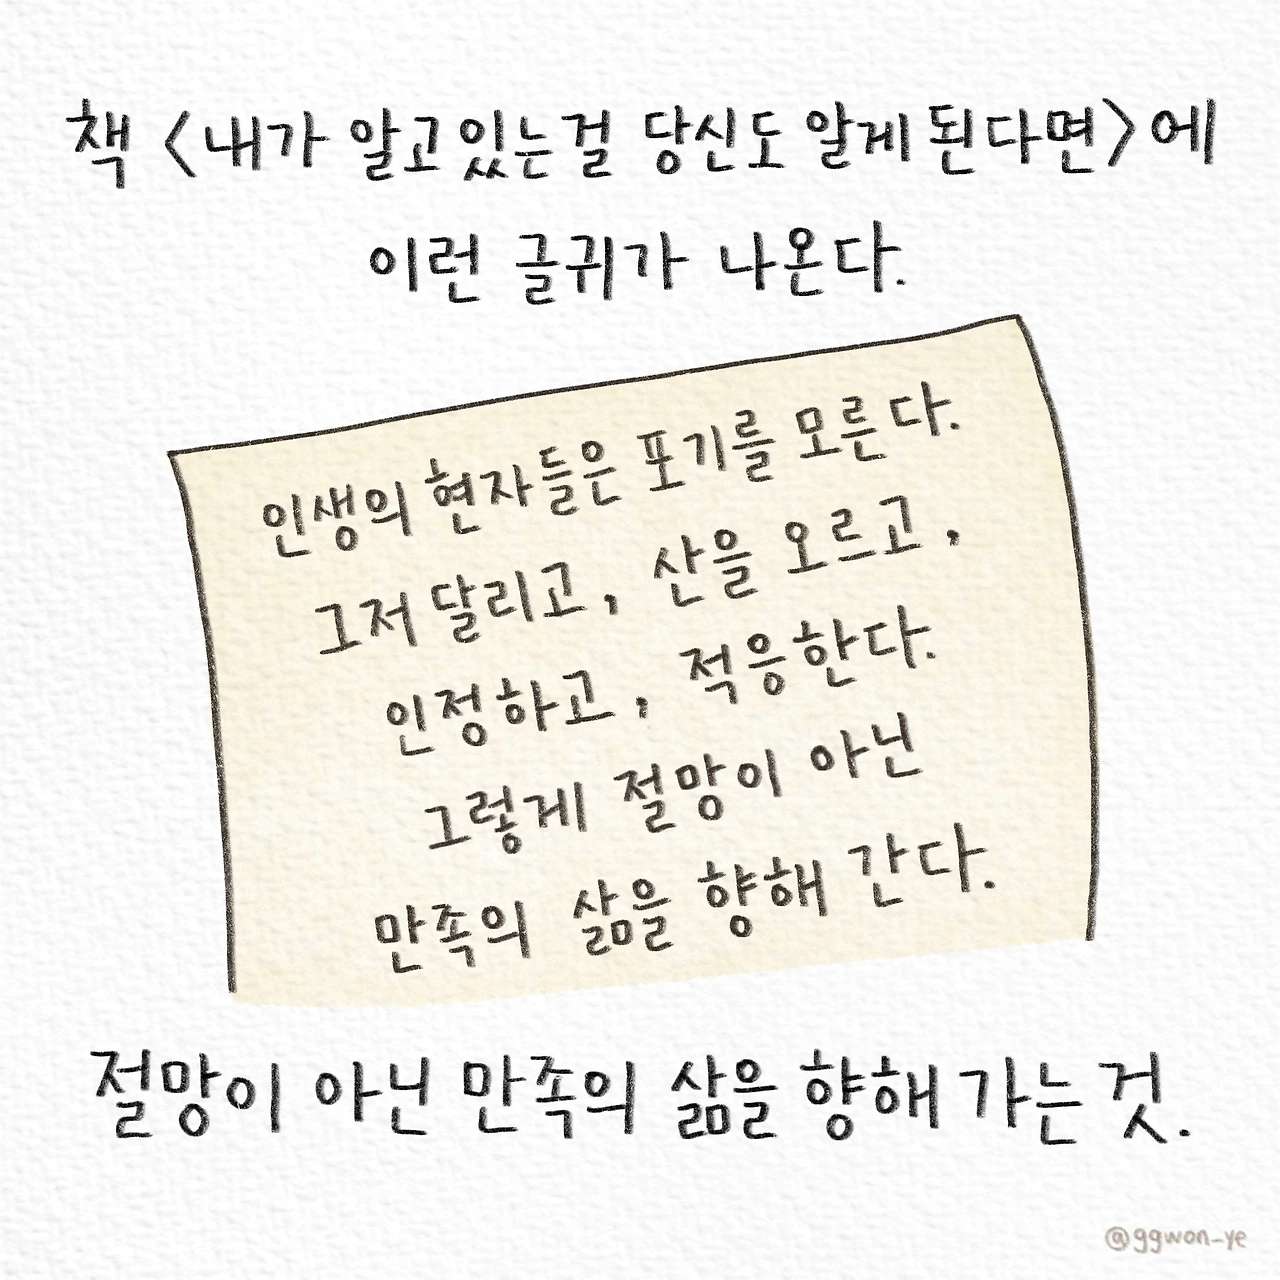 책 <내가 알고있는걸 당신도 알게 된다면>에
이런 글귀가 나온다.
인생의 현자들은 포기를 모른다.
그저 달리고, 산을 오르고,
인정하고, 적응한다.
그렇게 절망이 아닌
만족의 삶을 향해 간다.
절망이 아닌 만족의 삶을 향해 가는 것.
@ggwon_ye